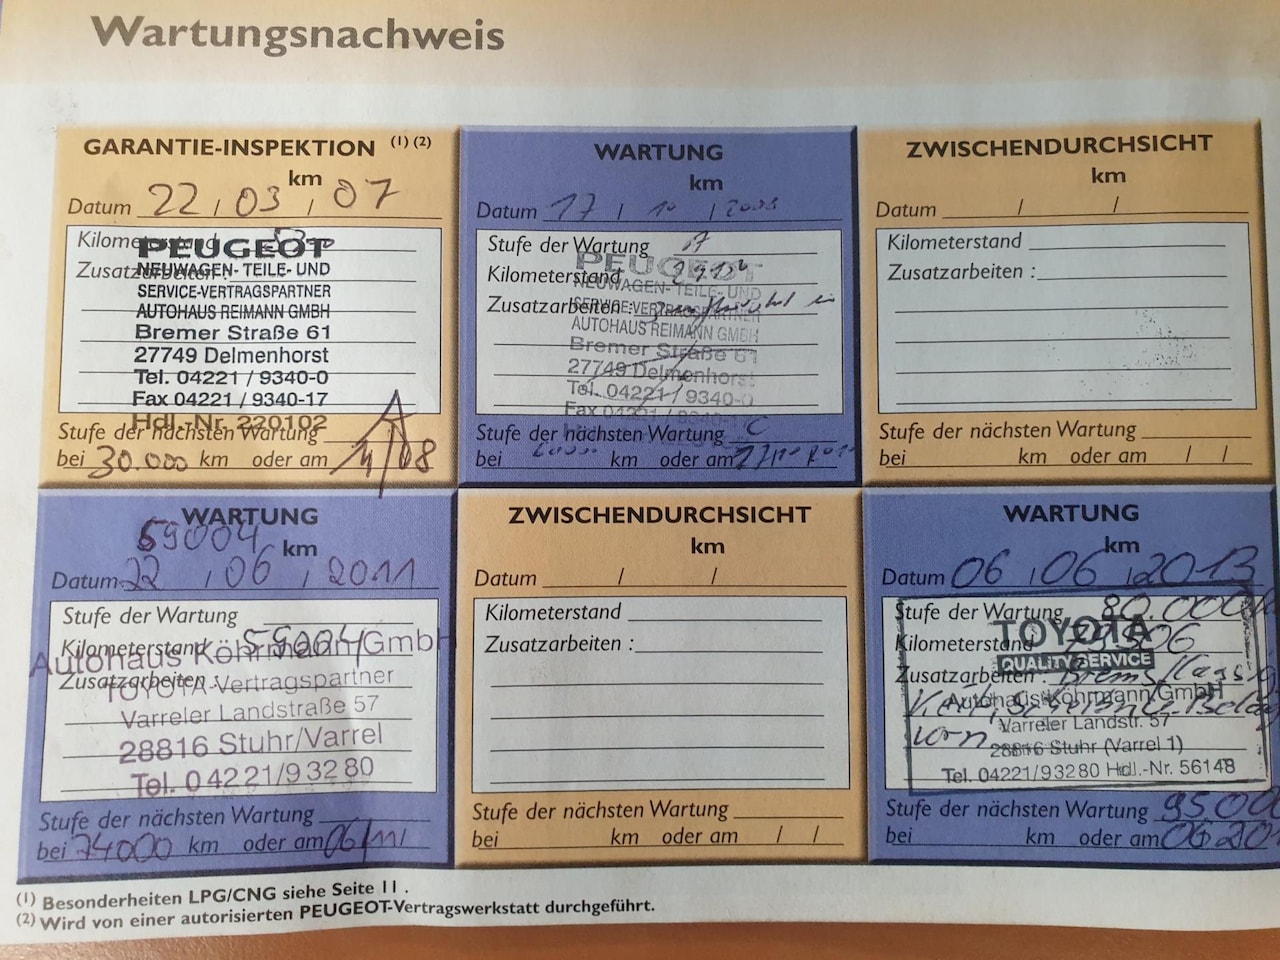 Wartungsnachweis
GARANTIE-INSPEKTION (1) (2)
km
Datum 22 / 03 / 07
Kilometerstand
Zusatzarbeiten :
PEUGEOT
NEUWAGEN- TEILE- UND
SERVICE-VERTRAGSPARTNER
AUTOHAUS REIMANN GMBH
Bremer Straße 61
27749 Delmenhorst
Tel. 04221 / 9340-0
Fax 04221 / 9340-17
Hdl.-Nr. 220102
Stufe der nächsten Wartung A
bei 30.000 km oder am 
WARTUNG
km
Datum 17 / 10 /
Stufe der Wartung A
Kilometerstand
Zusatzarbeiten :
PEUGEOT
NEUWAGEN- TEILE- UND
SERVICE-VERTRAGSPARTNER
AUTOHAUS REIMANN GMBH
Bremer Straße 61
27749 Delmenhorst
Tel. 04221 / 9340-0
Fax 04221 / 9340-
Stufe der nächsten Wartung C
bei km oder am
ZWISCHENDURCHSICHT
km
Datum / /
Kilometerstand
Zusatzarbeiten :
Stufe der nächsten Wartung
bei km oder am / /
WARTUNG
59004 km
Datum 22 / 06 / 2011
Stufe der Wartung
Kilometerstand 59004
Zusatzarbeiten :
Autohaus Köhrmann GmbH
TOYOTA-Vertragspartner
Varreler Landstraße 57
28816 Stuhr/Varrel
Tel. 0 42 21/9 32 80
Stufe der nächsten Wartung
bei 74000 km oder am
ZWISCHENDURCHSICHT
km
Datum / /
Kilometerstand
Zusatzarbeiten :
Stufe der nächsten Wartung
bei km oder am / /
WARTUNG
km
Datum 06 / 06 / 2013
Stufe der Wartung 80.000
Kilometerstand
Zusatzarbeiten :
vorn
TOYOTA
QUALITY SERVICE
Autohaus Köhrmann GmbH
Varreler Landstr. 57
28816 Stuhr (Varrel 1)
Tel. 04221/93280 Hdl.-Nr. 56148
Stufe der nächsten Wartung
bei km oder am
(1) Besonderheiten LPG/CNG siehe Seite 11 .
(2) Wird von einer autorisierten PEUGEOT-Vertragswerkstatt durchgeführt.